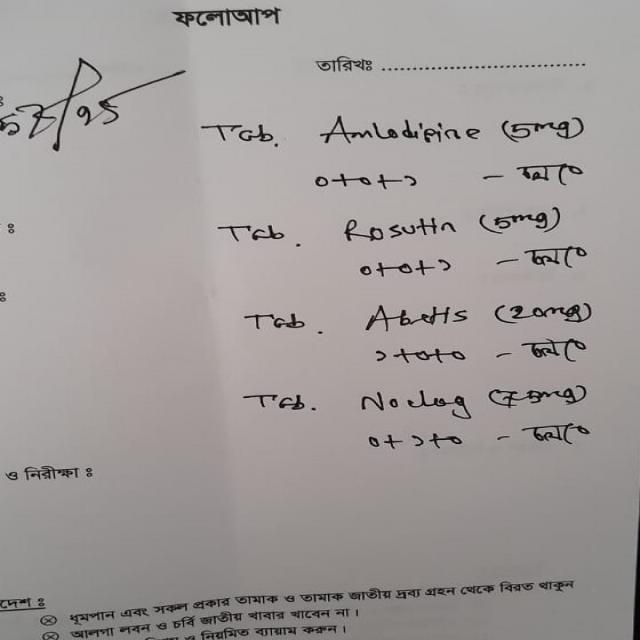 ফলোআপ
তারিখঃ ................................
Tab. Amlodipine (5mg)
০+০+১ – চলবে
Tab. Rosutin (5mg)
০+০+১ – চলবে
Tab. Abetis (20mg)
১+০+০ – চলবে
Tab. Noclog (75mg)
০+১+০ – চলবে
ও নিরীক্ষা ঃ
দেশ ঃ
ধূমপান এবং সকল প্রকার তামাক ও তামাক জাতীয় দ্রব্য গ্রহন থেকে বিরত থাকুন
আলগা লবন ও চর্বি জাতীয় খাবার খাবেন না।
ও নিয়মিত ব্যায়াম করুন।